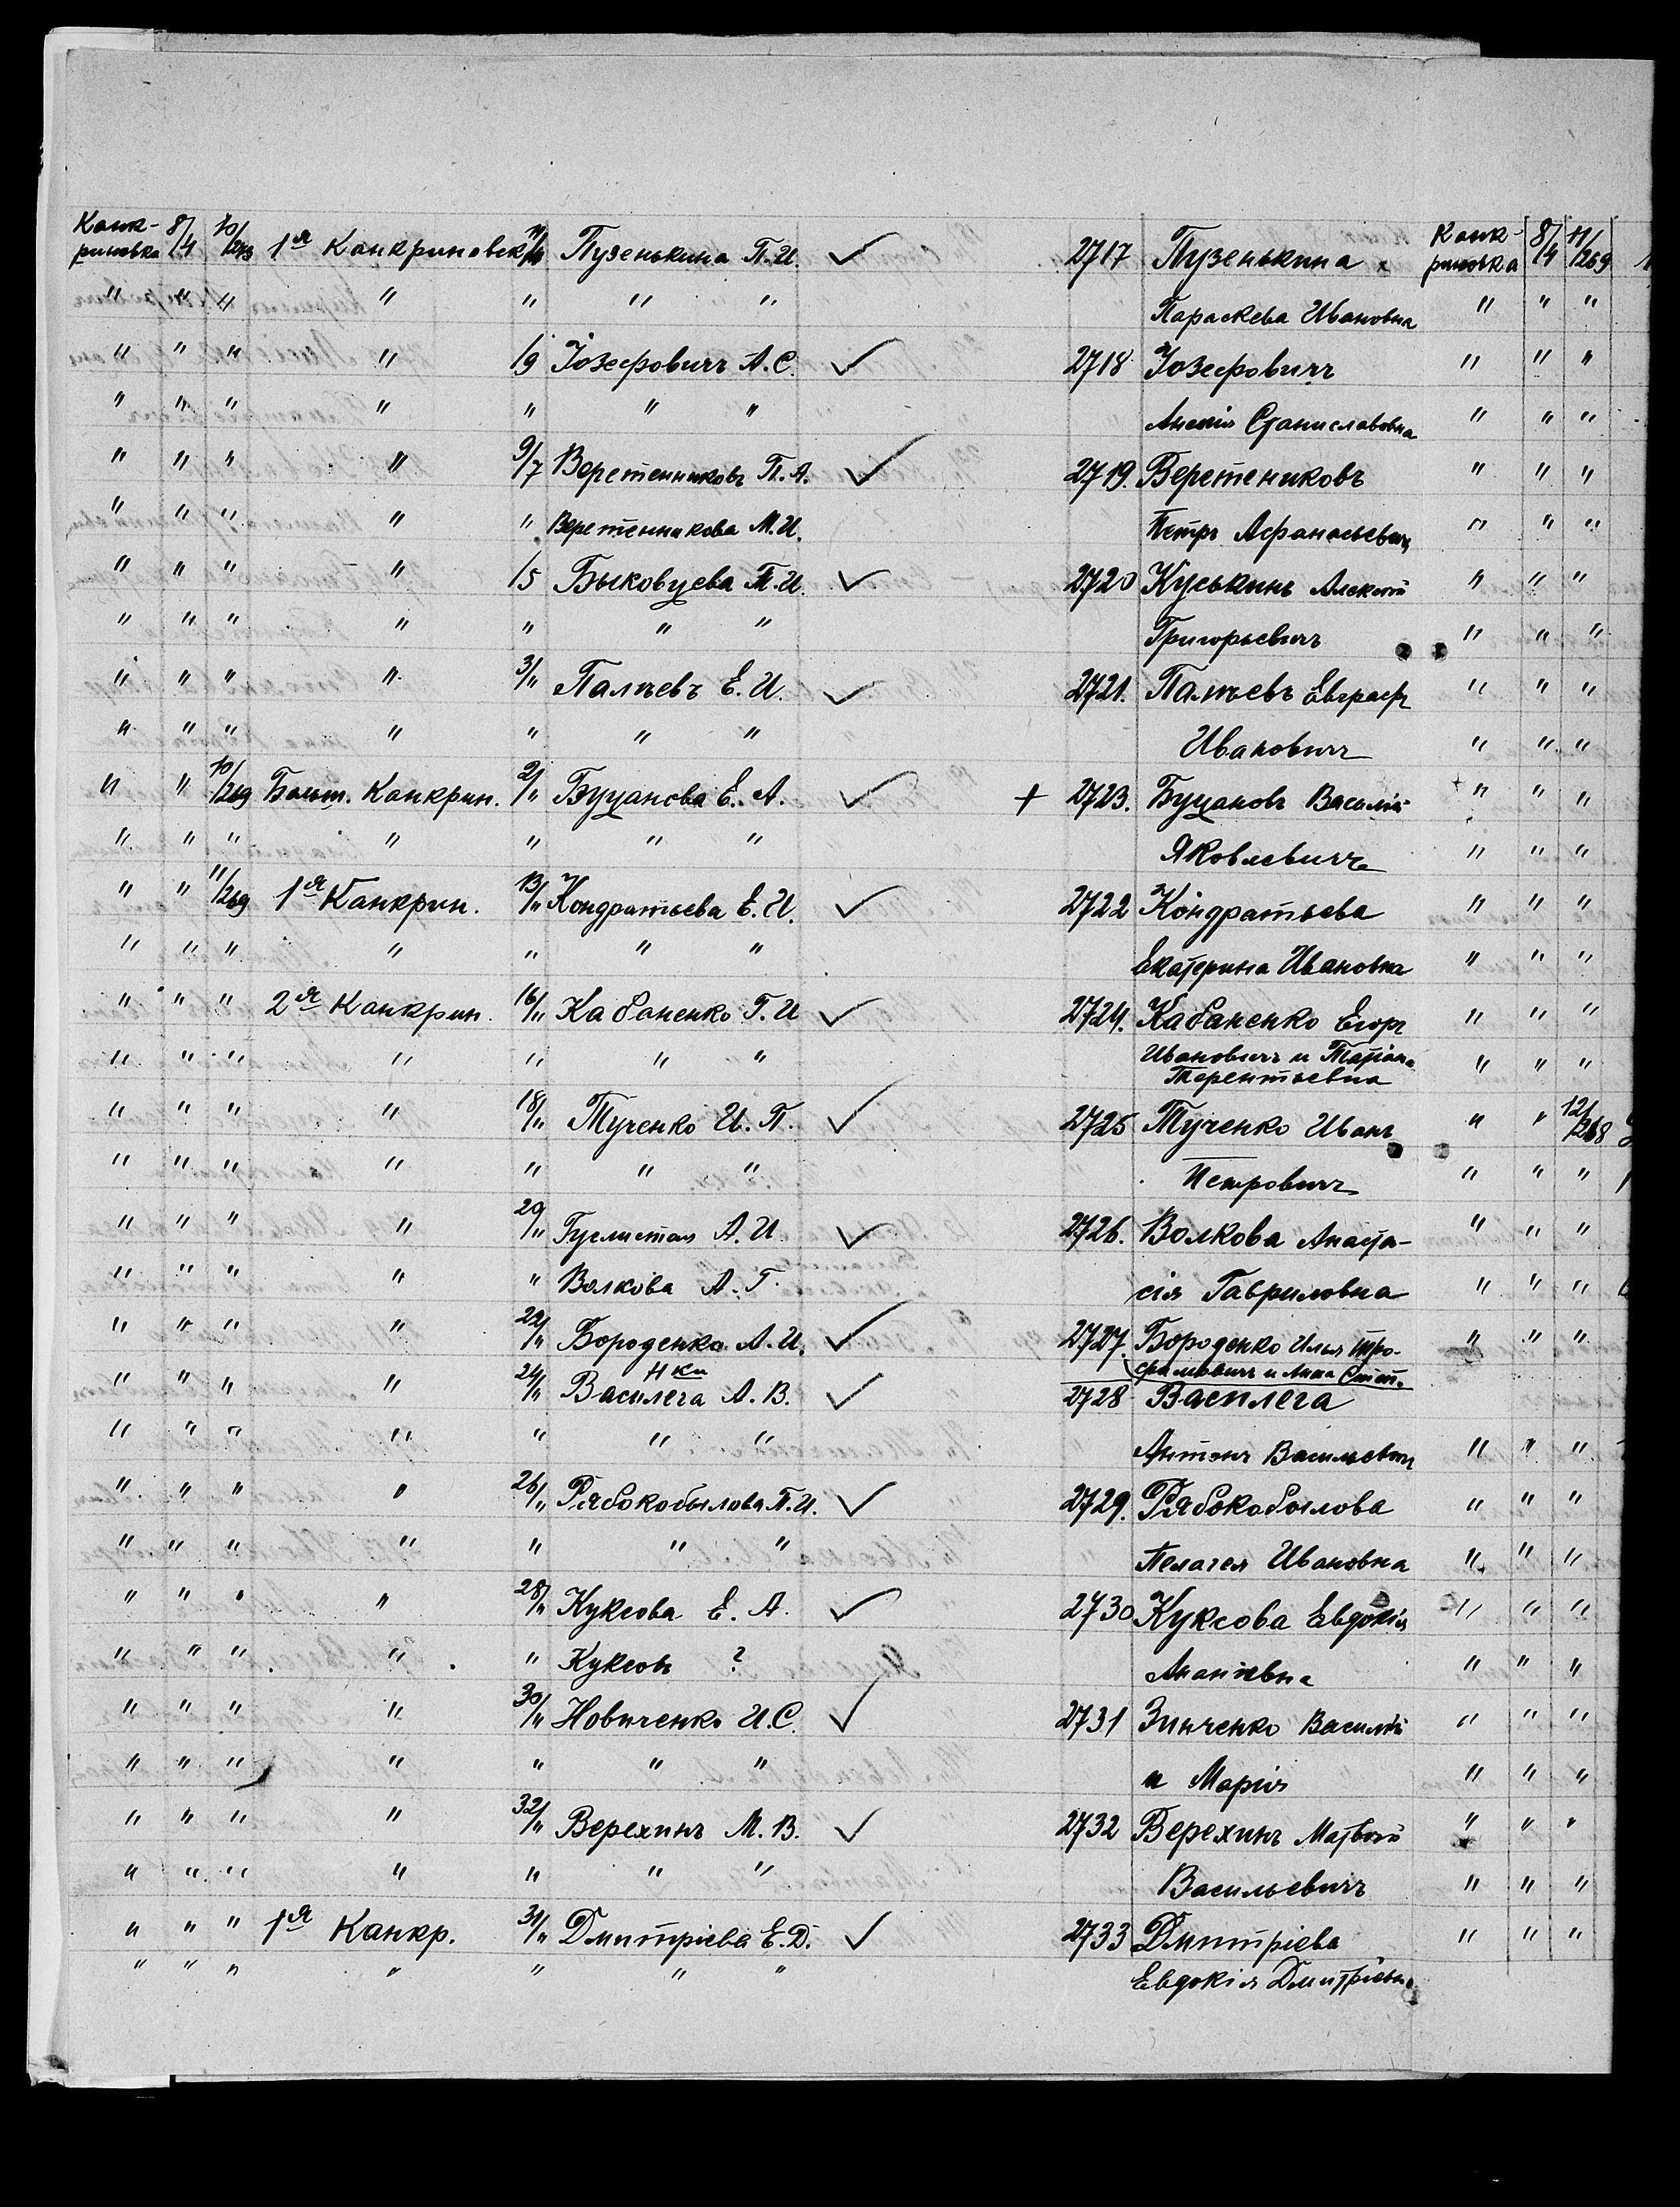 Канк-риновка 8/4 10/273 1я Канкриновск. 11/14 Пузенькина П.И. ✓ 2717 Пузенькина Канк-риновка 8/4 11/269
" " " " " " " Параскева Ивановна " " "
" " " " 1/9 Іозефовичъ А.С. ✓ 2718 Іозефовичъ " " "
" " " " " " " Анелія Станиславовна " " "
" " " " 9/7 Веретенниковъ П.А. ✓ 2719. Веретениковъ " " "
" " " " " Веретенникова М.И. Петръ Афанасьевичъ " " "
" " " " 1/5 Быковцева П.И. ✓ 2720 Куськинъ Алексѣй " " "
" " " " " " " Григорьевичъ " " "
" " " " 3/" Палѣевъ Е.И. ✓ 2721. Палѣевъ Евграфъ " " "
" " " " " " " Ивановичъ " " "
" " 10/269 Больш. Канкрин. 2/" Буцанова Е.А. ✓ + 2723. Буцановъ Василій " " "
" " " " " " " Яковлевичъ " " "
" " 11/269 1я Канкрин. 13/" Кондратьева Е.И. ✓ 2722 Кондратьева " " "
" " " " " " " Екатерина Ивановна " " "
" " " 2я Канкрин. 16/" Кабаненко Г.И ✓ 2724. Кабаненко Егоръ " " "
" " " " " " " Ивановичъ и Татіана Терентьевна " " "
" " " " 18/" Тученко И.П. ✓ 2725 Тученко Иванъ " " 12/268
" " " " " " " Петровичъ " " "
" " " " 20/" Гуслистая А.И. ✓ 2726. Волкова Анаста- " " "
" " " " " Волкова А.Г. сія Гавриловна " " "
" " " " 22/" Бороденко А.И. ✓ 2727. Бороденко Илья Тро- " " "
фимовичъ и Анна Степ.
" " " " 24/" Василега А.В. н ки ✓ 2728 Василега
" " " " " " " Антонъ Васильевичъ " " "
" " " " 26/" Рябокобылова П.И. ✓ 2729. Рябокобылова " " "
" " " " " " " Пелагея Ивановна " " "
" " " " 28/" Куксова Е.А. ✓ 2730 Куксова Евдокія " " "
" " " " " Куксовъ ? Ананіевна " " "
" " " " 30/" Новиченко И.С. ✓ 2731 Зинченко Василій " " "
" " " " " " " и Марія " " "
" " " " 32/" Верехинъ М.В. ✓ 2732 Верехинъ Матвѣй " " "
" " " " " " " Васильевичъ " " "
" " " 1я Канкр. 31/" Дмитріева Е.Д. ✓ 2733 Дмитріева " " "
" " " " " " " Евдокія Дмитріевна